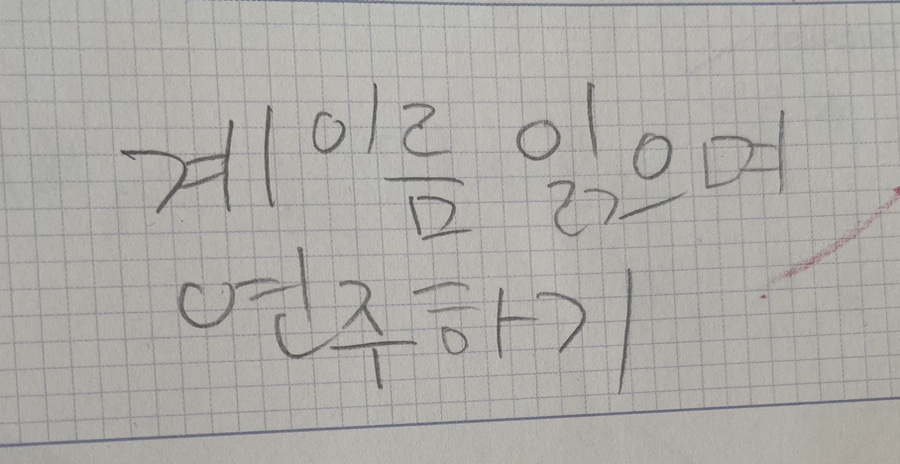 계이름 읽으며
연주하기